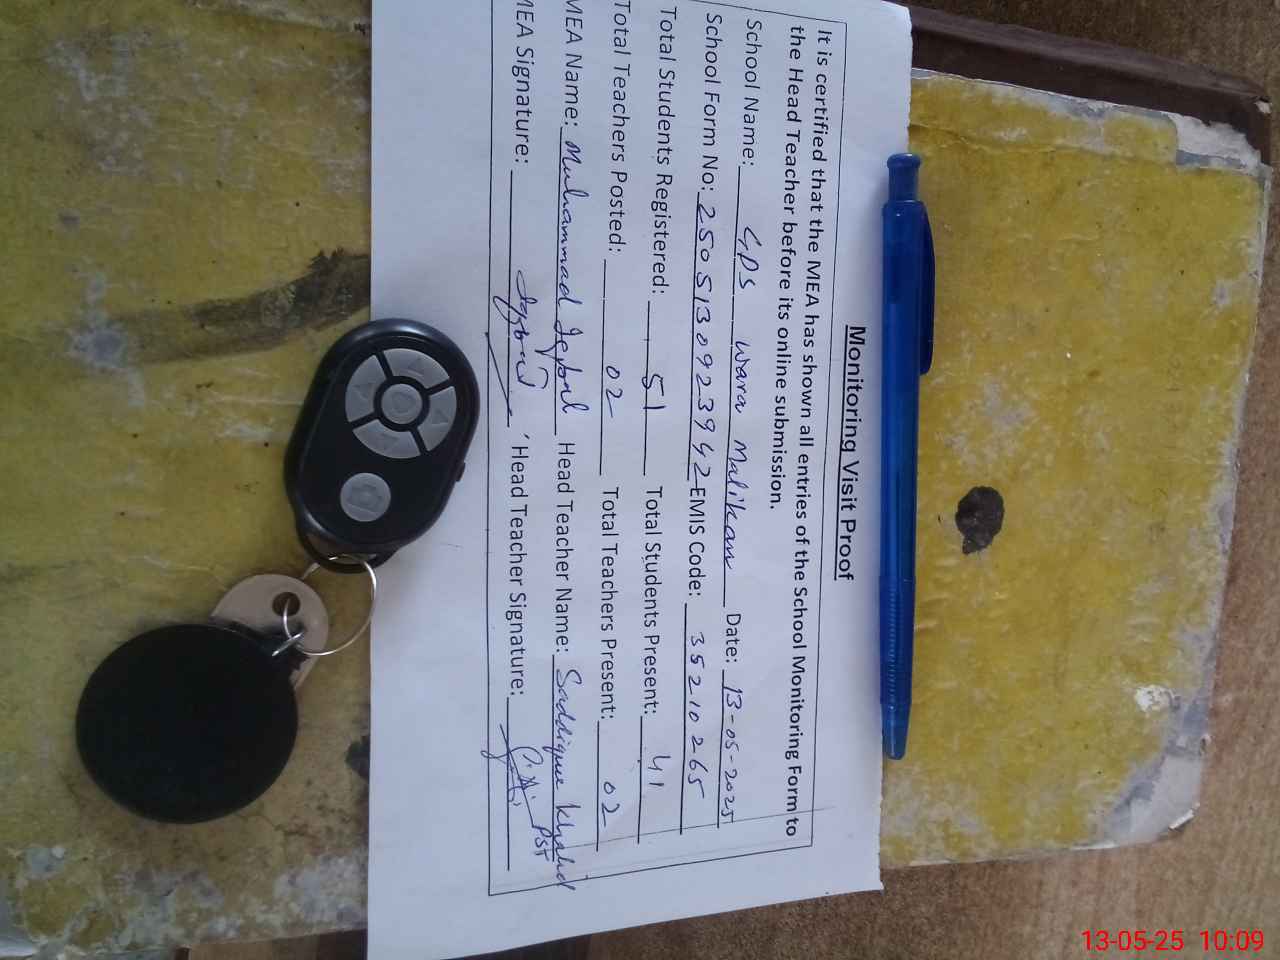 Monitoring Visit Proof
It is certified that the MEA has shown all entries of the School Monitoring Form to
the Head Teacher before its online submission.
School Name: GPS wara Malikan Date: 13-05-2025
School Form No: 2505130923942 EMIS Code: 35210265
Total Students Registered: 51 Total Students Present: 41
Total Teachers Posted: 02 Total Teachers Present: 02
MEA Name: Muhammad Iqbal Head Teacher Name: Saddique Khalid
MEA Signature: Head Teacher Signature: PST
13-05-25 10:09